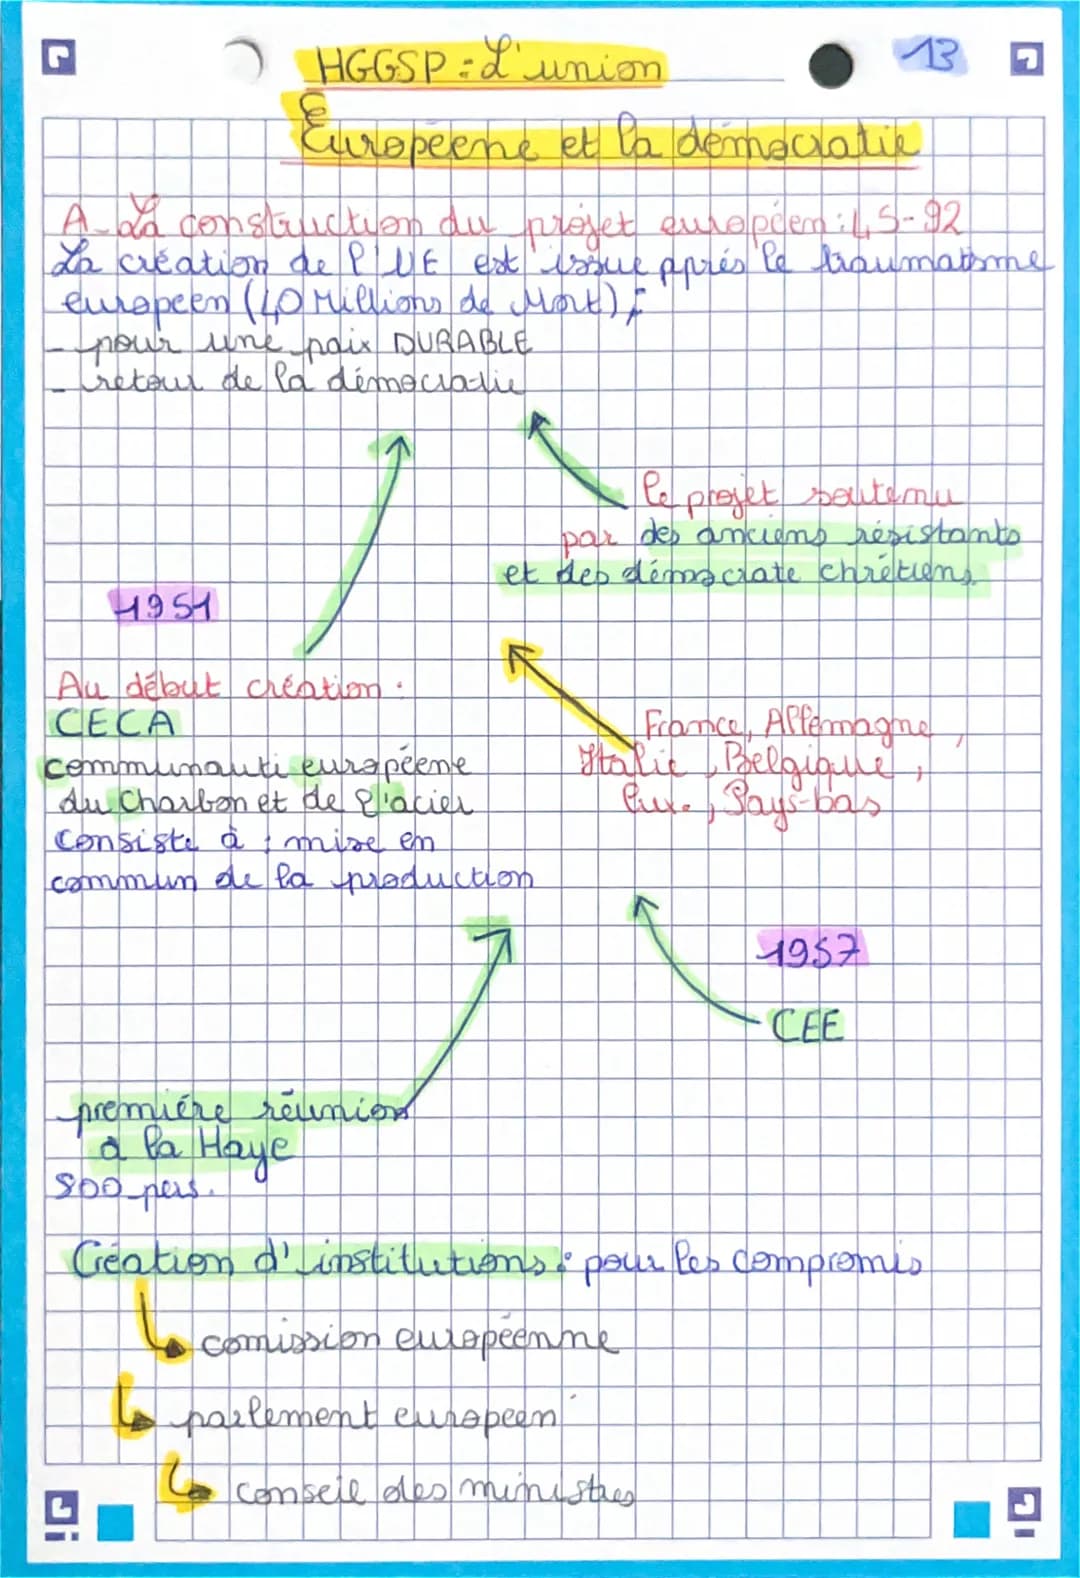 13
HGGSP : L'union
Européene et la démocratie
A- La construction du projet européen : 45-92
La création de l'UE est issue aprés le traumatisme
européen (40 Millions de Mort) ;
- pour une paix DURABLE
- retour de la démocratie
le projet soutenu
par des anciens résistants
et des démocrate chrétiens
1951
Au début création :
CECA
communauti européene
du Charbon et de l'acier
consiste à : mise en
commun de la production
France, Allemagne,
Italie, Belgique,
Lux., Pays-bas
1957
CEE
premiére réunion
a la Haye
800 pers.
Création d'institutions : pour les compromis
comission européenne
parlement européen
conseil des ministres